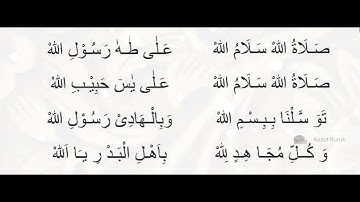 صَلَاةُ اللهْ سَلَامُ اللهْ عَلَٰى طٰهٰ رَسُوْلِ اللهْ
صَلَاةُ اللهْ سَلَامُ اللهْ عَلَٰى يٰسٓ حَبِيْبِ اللهْ
تَوَ سَّلْنَا بِبِسْمِ اللهْ وَبِالْهَادِىْ رَسُوْلِ اللهْ
وَ كُلِّ مُجَا هِدٍ لِلهْ بِاَهْلِ الْبَدْ رِ يَا اَللهْ
Kasut Buruk